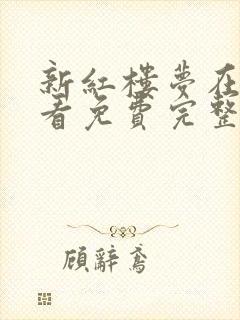 新红楼梦在
看免费完整
顾辞鸢